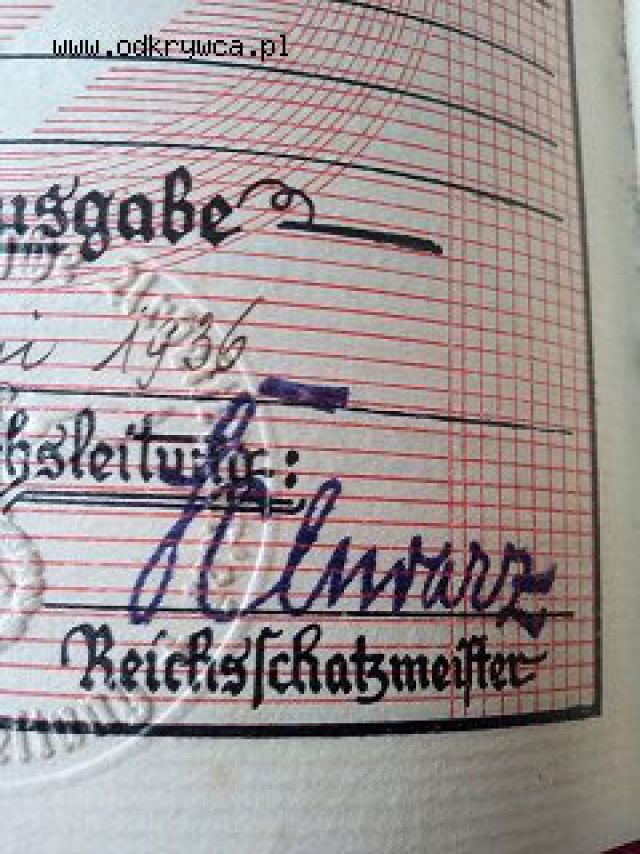 www.odkrywca.pl
usgabe
i 1936
hsleitung:
Schwarz
Reichsschatzmeister